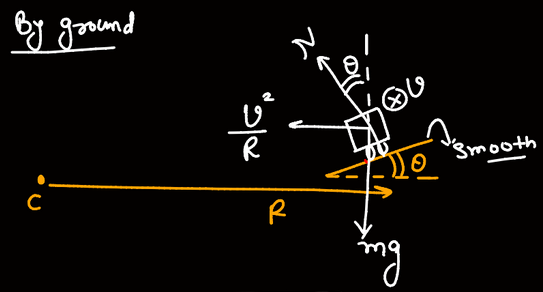 By ground
N
θ
⊗ v
v²/R
smooth
θ
C
R
mg